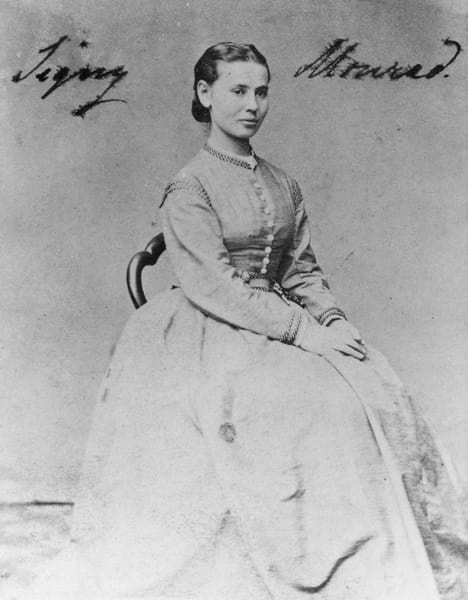 Signy Monrad.